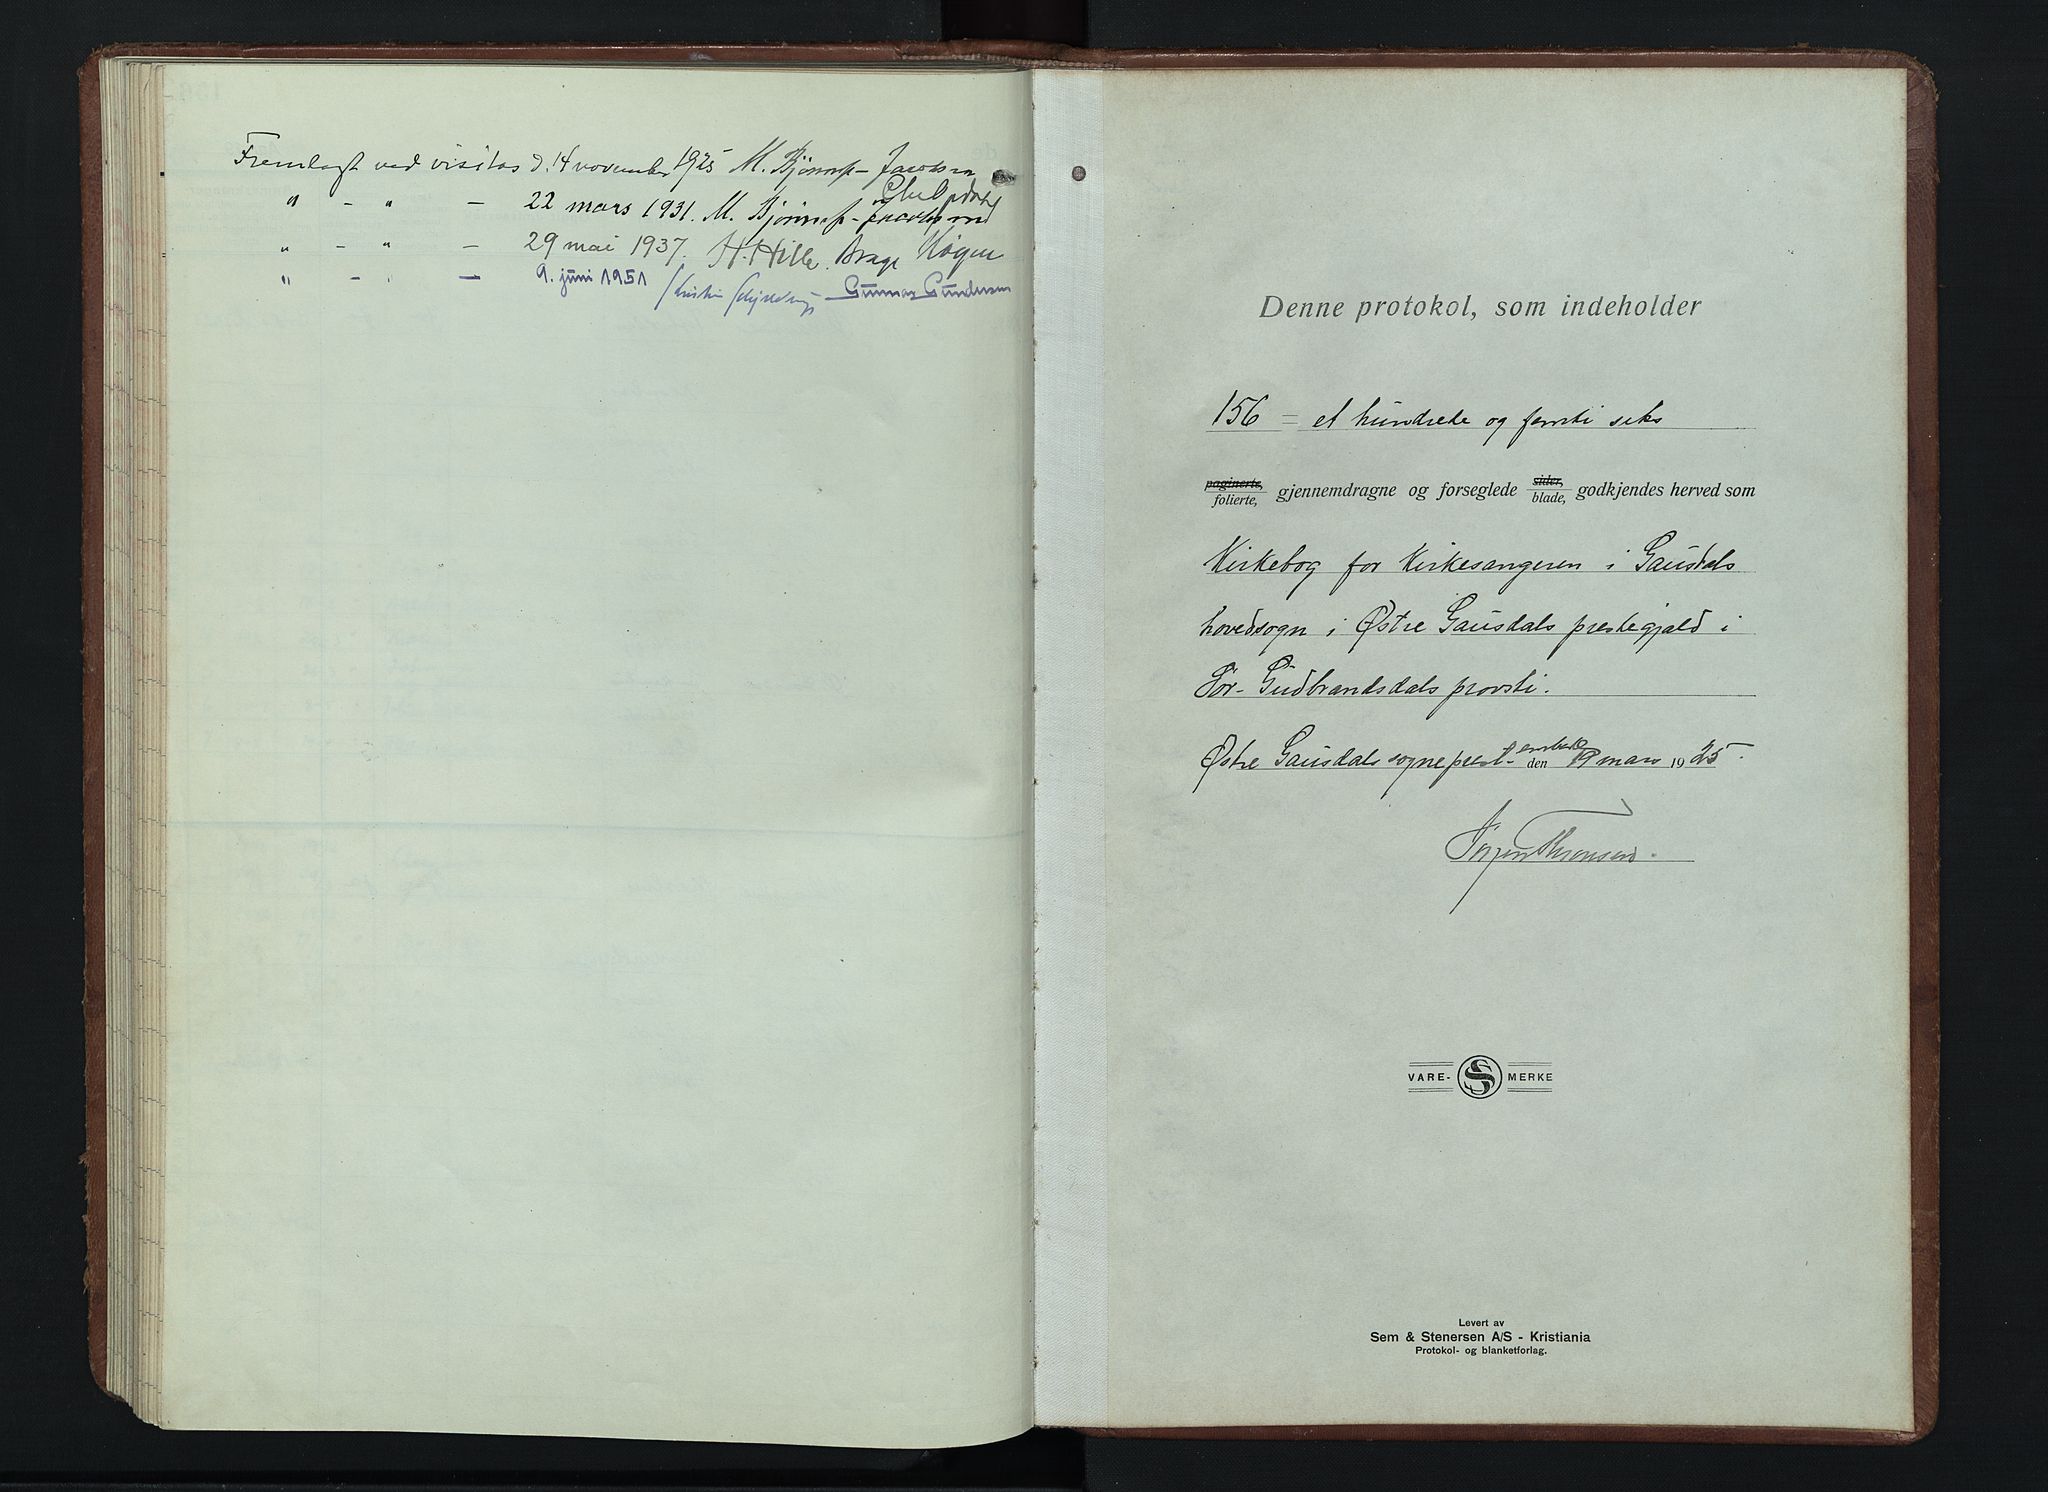 Fremlagt ved visitas d. 14 november 1925 M. Bjønnes-Jacobsen
" - " - 22 mars 1931. M. Bjønnes-Jacobsen
" - " - 29 mai 1937. H. Hille. Brage Høyem
" - " - 9. juni 1951 Kristian Schjelderup - Gunnar Gundersen
Denne protokol, som indeholder
156 = et hundrede og femti seks
paginerte, folierte, gjennemdragne og forseglede sider, blade, godkjendes herved som
Kirkebog for Kirkesangeren i Gausdals
hovedsogn i Østre Gausdals prestegjeld i
Sør-Gudbrandsdals provsti.
Østre Gausdals sogneprestembede den 19 mars 1925.
Jørgen Thronsen.
VARE-MERKE
Levert av
Sem & Stenersen A/S - Kristiania
Protokol- og blanketforlag.